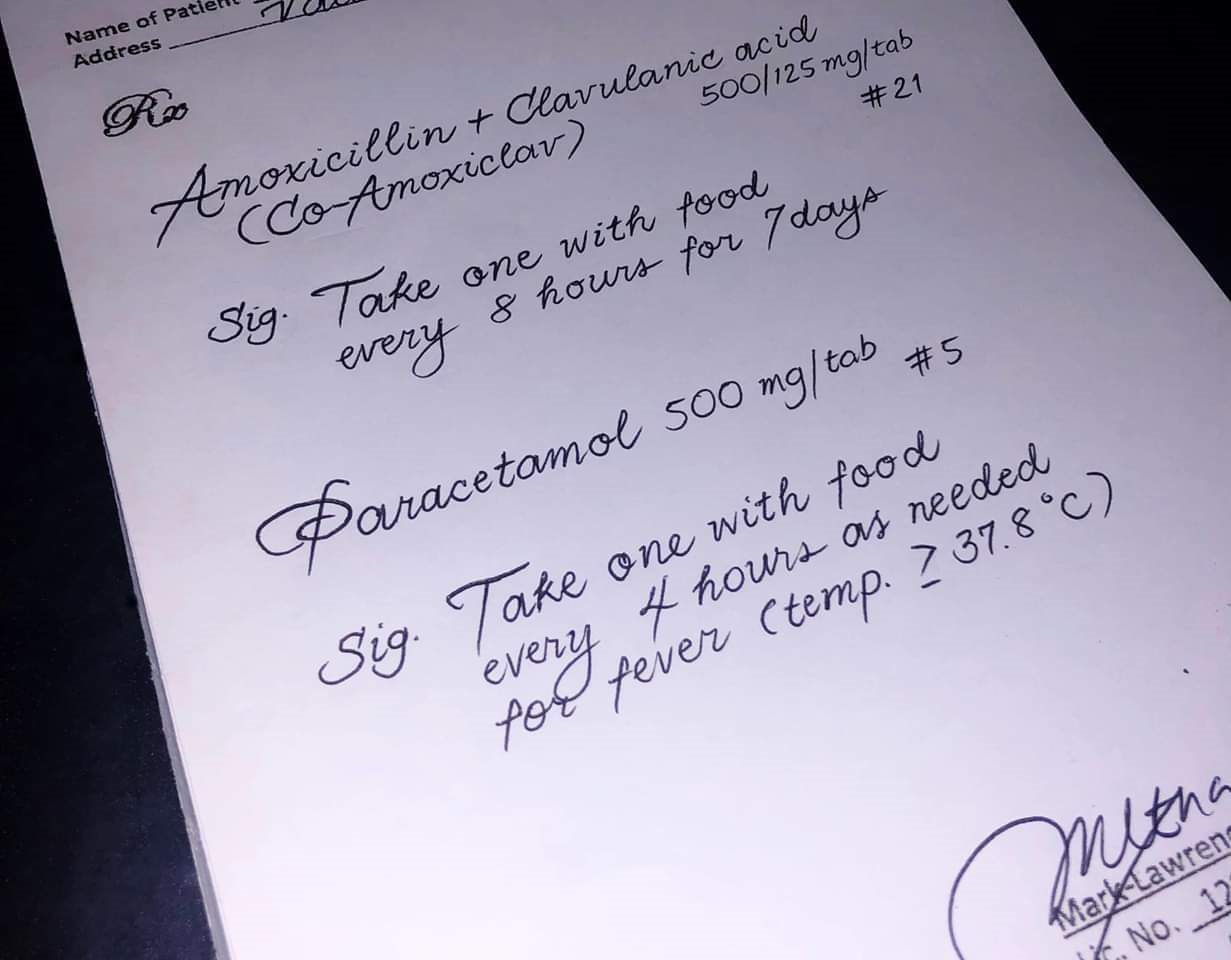 Name of Patient
Address
Rx
Amoxicillin + Clavulanic acid
(Co-Amoxiclav) 500/125 mg/tab
#21
Sig. Take one with food
every 8 hours for 7 days
Paracetamol 500 mg/tab #5
Sig. Take one with food
every 4 hours as needed
for fever (temp. ≥ 37.8°C)
Mark-Lawren
Lic. No. 12